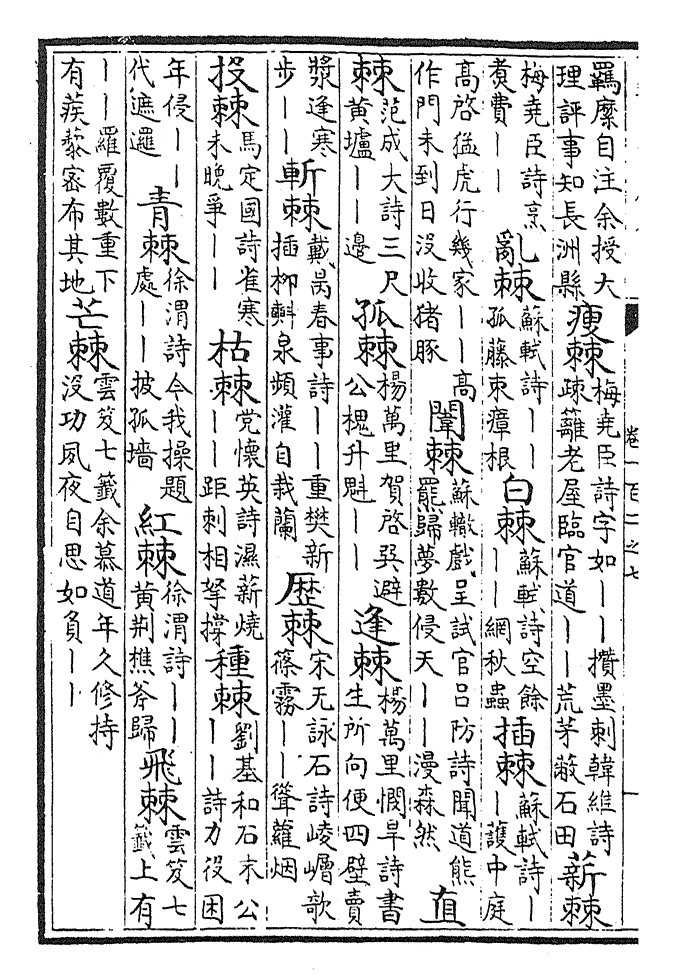 羈縻自注余授大理評事知長洲縣瘦棘梅堯臣詩字如丨丨攢墨刺韓維詩疎籬老屋臨官道丨丨荒茅蔽石田薪棘
梅堯臣詩烹煑費丨丨亂棘蘇軾詩丨丨孤藤束瘴根白棘蘇軾詩空餘丨丨網秋蟲插棘蘇軾詩丨丨護中庭
高啓猛虎行幾家丨丨高作門未到日沒收猪豚闈棘蘇轍戲呈試官呂防詩聞道熊羆歸夢數侵天丨丨漫森然直
棘范成大詩三尺黄壚丨丨邊孤棘楊萬里賀啓巽避公槐升魁丨丨逢棘楊萬里憫旱詩書生所向便四壁賣
漿逢寒步丨丨斬棘戴昺春事詩丨丨重樊新插柳斛泉頻灌自栽蘭歴棘宋无詠石詩崚嶒歌篠霧丨丨聳蘿烟
投棘馬定國詩雀寒未晚爭丨丨枯棘党懷英詩濕薪燒丨丨距刺相拏撐種棘劉基和石末公丨丨詩力役困
年侵丨丨代遮邏青棘徐渭詩今我操題處丨丨披孤墻紅棘徐渭詩丨丨黄荆樵斧歸飛棘雲笈七籤上有
丨丨羅覆數重下有蒺藜密布其地芒棘雲笈七籤余慕道年久修持沒功夙夜自思如負丨丨
卷一百二之七